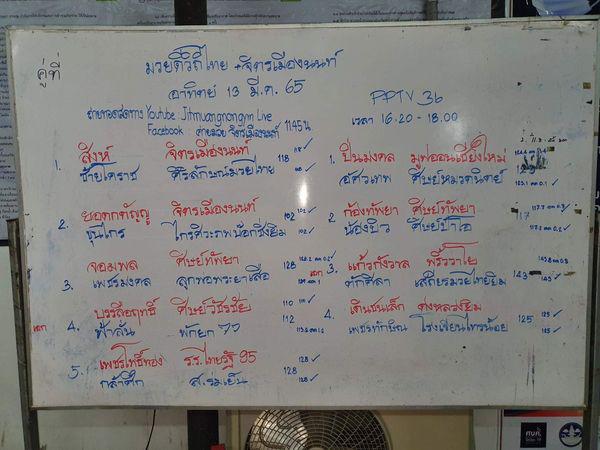 คู่ที่
มวยดีวิถีไทย + จิตรเมืองนนท์
อาทิตย์ 13 มี.ค. 65
ถ่ายทอดสดทาง Youtube Jitmuangnongym Live
Facebook : ค่ายมวย จิตรเมืองนนท์ 1145 น
PPTV 36
เวลา 16.20 - 18.00
1. สิงห์ จิตรเมืองนนท์ 118
ชายโคราช ศิริลักษณ์มวยไทย
2. ยอดกตัญญู จิตรเมืองนนท์ 102 102 ✓
ขุนไกร ไกรศิวะภพน้อกซิ่งยิม 102 ✓
3. จอมพล ศิษย์ทัพยา 128
เพชรมงคล ลูกพ่อพระยาเสือ
4. บรรลือฤทธิ์ ศิษย์วัชรชัย 110 111 ✓
ฟ้าลั่น พักยก 70 112
5. เพชรโพธิ์ทอง ร.ร.ไทยรัฐ 95 128 ✓
กล้าศึก ส.ร่มเย็น 128 128 ✓
1. ปิ่นมงคล มูฟออนเชียงใหม่
อัศวเทพ ศิษย์หมวดนิตย์
2. ก้องทัพยา ศิษย์ทัพยา 117
น้องบิว ศิษย์ป๋าโอ
3. แก้วกังวาล พรีวาโย 143
ศักศิลา เสถียรมวยไทยยิม 143 ✓
4. เดินชนเล็ก ดงหลวงยิม 125 125 ✓
เพชรทักษิณ โรงเรียนไทรน้อย 125 ✓